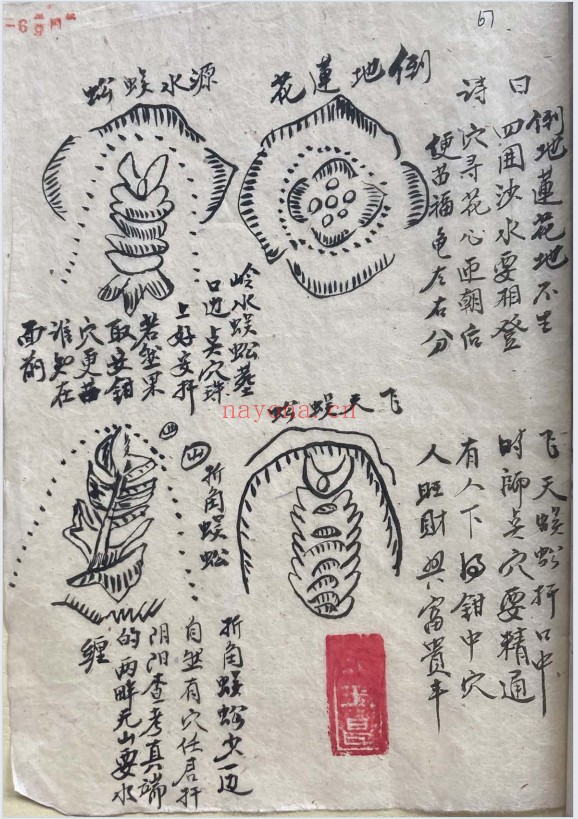 67
倒地蓮花
詩曰
倒地蓮花地不生
四囲沙水要相登
穴寻花心定朝后
福龟左右分
源水蜈蚣
岭水蜈蚣墓
口边点穴珠
上好安扦
若無果
取安鉗
穴更
谁知在
面前
飞天蜈蚣
飞天蜈蚣扦口中
时師点穴要精通
有人下得鉗中穴
人旺財興富貴丰
四
四
折角蜈蚣
折角蜈蚣少一边
自然有穴任君扦
阴阳查考真端
的两畔无山要水
纏
nayona.cn